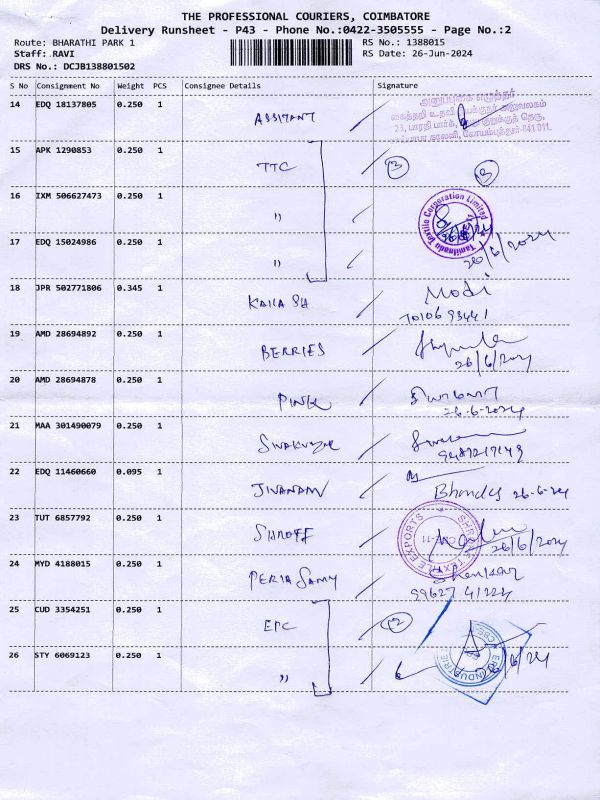 THE PROFESSIONAL COURIERS, COIMBATORE
Delivery Runsheet - P43 - Phone No.:0422-3505555 - Page No.:2
Route: BHARATHI PARK 1 RS No.: 1388015
Staff: RAVI RS Date: 26-Jun-2024
DRS No.: DCJB138801502
S No Consignment No Weight PCS Consignee Details Signature
14 EDQ 18137805 0.250 1 ASSISTANT
23, பாரதி பார்க்,
15 APK 1290853 0.250 1 TTC 3 3
16 IXM 506627473 0.250 1 "
Tamilnadu Textile Corporation Limited
17 EDQ 15024986 0.250 1 " 26/6/2024
18 JPR 502771806 0.345 1 KAILASH Modi
7010693441
19 AMD 28694892 0.250 1 BERRIES
26/6/2024
20 AMD 28694878 0.250 1 PINK
26-6-2024
21 MAA 301490079 0.250 1
9487217149
22 EDQ 11460660 0.095 1 JIVANAM 26-6-24
23 TUT 6857792 0.250 1 SHROFF
TEXTILE EXPORTS
CBE-11
26/6/2024
24 MYD 4188015 0.250 1 PERIASAMY Shenkar
99627 41224
25 CUD 3354251 0.250 1 EPC 2
26 STY 6069123 0.250 1 "